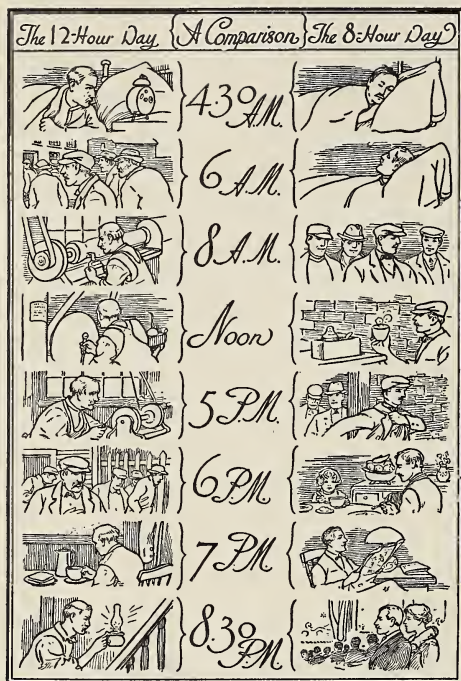 The 12-Hour Day A Comparison The 8-Hour Day
4.30 A.M.
6 A.M.
8 A.M.
Noon
5 P.M.
6 P.M.
7 P.M.
8.30 P.M.